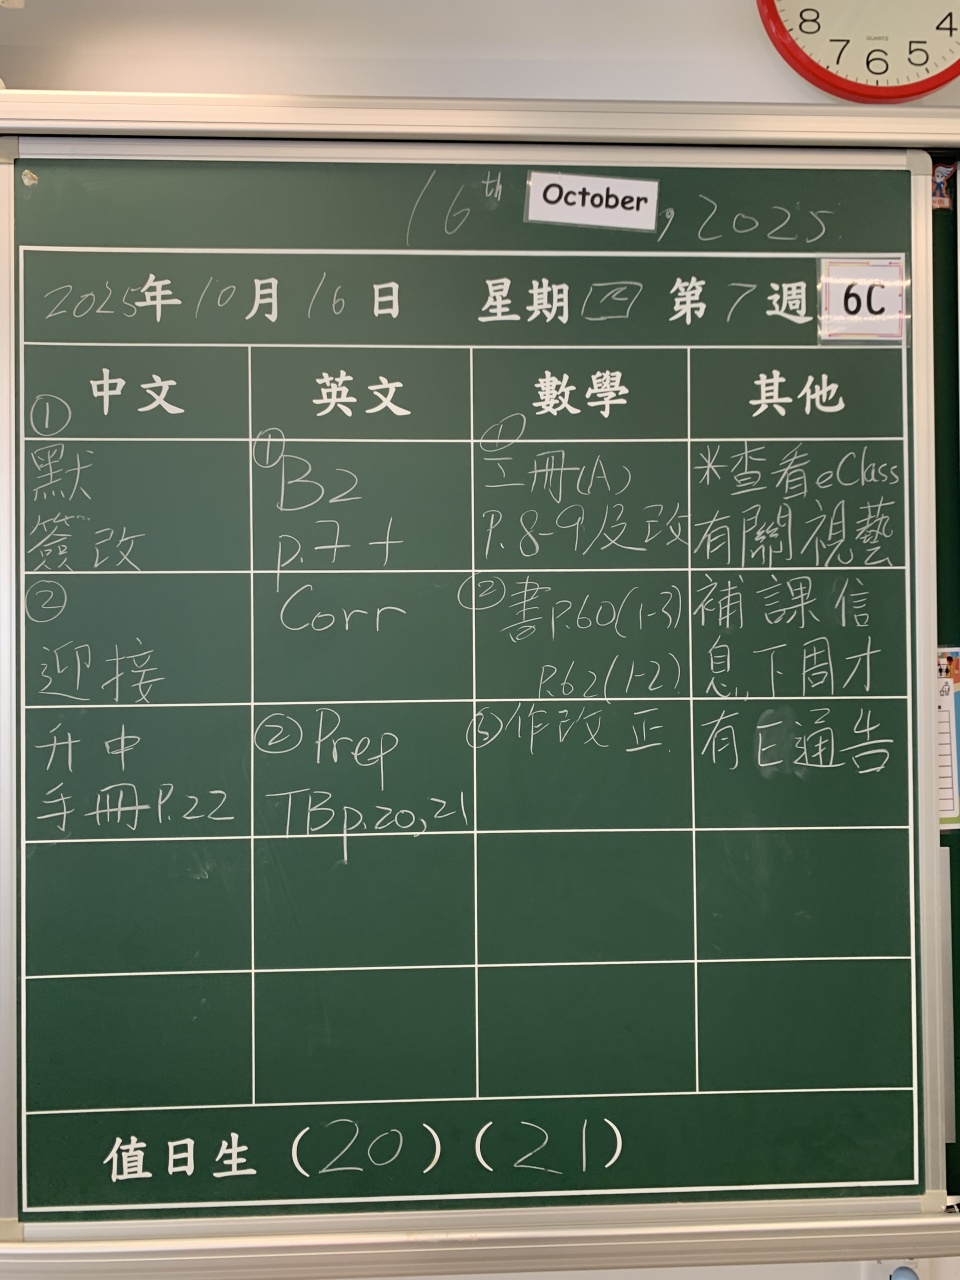 8 7 6 5 4
QUARTZ
16th October, 2025.
2025年10月16日 星期四 第7週 6C
中文 英文 數學 其他
①
默
簽改
②
迎接
升中
手冊P.22
①B2
p.7+
Corr
②Prep
TBp.20,21
①
工冊(A)
P.8-9及改
②書P.60(1-3)
P.62(1-2)
③作改正
*查看eClass
有關視藝
補課信
息,,下周才
有E通告
值日生(20)(21)